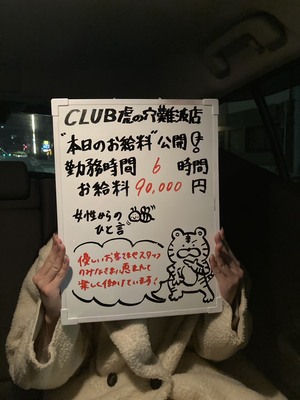 CLUB虎の穴難波店
"本日のお給料"公開!
勤務時間 6 時間
お給料 90,000 円
女性からの
ひと言
優しいお客さまやスタッフ
のみなさまに恵まれて
楽しく働けています!